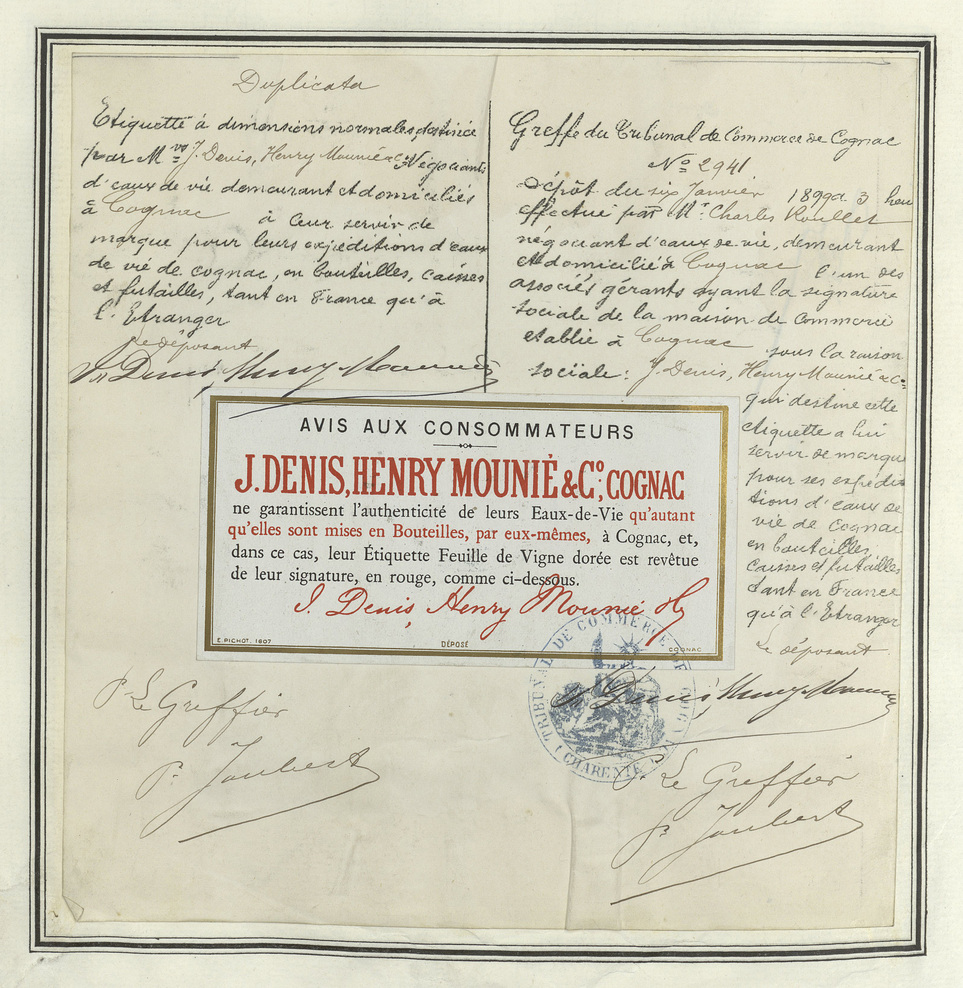 Duplicata
Etiquette à dimensions normales destinée
par Mrs J. Denis, Henry Mounié & Co Négociants
d'eaux de vie demeurant et domiciliés
à Cognac à leur servir de
marque pour leurs expéditions d'eaux
de vie de cognac, en bouteilles, caisses
et futailles, tant en France qu'à
l'Etranger
Le déposant
J. Denis, Henry Mounié
Greffe du Tribunal de Commerce de Cognac
No 2941
Dépôt du six Janvier 1899 a 3 heu
effectué par Mr Charles Roullet
négociant d'eaux de vie, demeurant
et domicilié à Cognac l'un des
associés gérants ayant la signature
sociale de la maison de commerce
etablie à Cognac sous la raison
sociale: J. Denis, Henry Mounié & Co
qui destine cette
etiquette a lui
servir de marque
pour ses expédi
tions d'eaux de
vie de Cognac
en bouteilles,
caisses et futailles
tant en France
qu'à l'Etranger
Le déposant
J. Denis, Henry Mounié
AVIS AUX CONSOMMATEURS
J. DENIS, HENRY MOUNIÉ & Co, COGNAC
ne garantissent l'authenticité de leurs Eaux-de-Vie qu'autant
qu'elles sont mises en Bouteilles, par eux-mêmes, à Cognac, et,
dans ce cas, leur Étiquette Feuille de Vigne dorée est revêtue
de leur signature, en rouge, comme ci-dessous.
J. Denis, Henry Mounié & Co
E. PICHOT. 1807 DÉPOSÉ COGNAC
TRIBUNAL DE COMMERCE DE COGNAC
(CHARENTE)
P. Le Greffier
P. Joubert
P. Le Greffier
P. Joubert